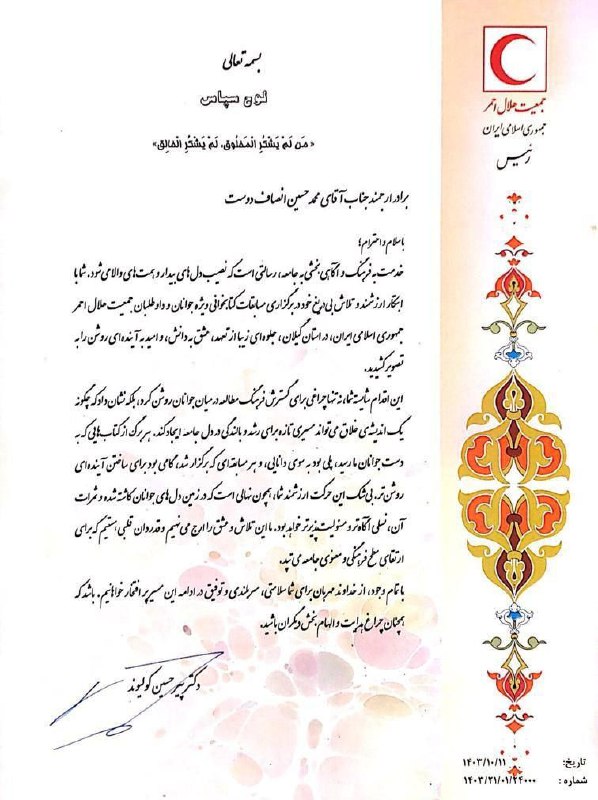 جمعیت هلال احمر
جمهوری اسلامی ایران
رئیس
بسمه تعالی
لوح سپاس
«مَن لَم یَشکُرِ المَخلُوق، لَم یَشکُرِ الخالِق»
برادر ارجمند جناب آقای محمد حسین انصاف دوست
با سلام و احترام؛
خدمت به فرهنگ و آگاهی بخشی به جامعه، رسالتی است که نصیب دل های بیدار و همت های والا می شود. شما با
ابتکار ارزشمند و تلاش بی دریغ خود در برگزاری مسابقات کتابخوانی ویژه جوانان و داوطلبان جمعیت هلال احمر
جمهوری اسلامی ایران، در استان گیلان، جلوه ای زیبا از تعهد، عشق به دانش، و امید به آینده ای روشن را به
تصویر کشیدید.
این اقدام شایسته شما، نه تنها چراغی برای گسترش فرهنگ مطالعه در میان جوانان روشن کرد، بلکه نشان داد که چگونه
یک اندیشه ی خلاق می تواند مسیری تازه برای رشد و بالندگی در دل جامعه ایجاد کند. هر برگ از کتاب هایی که به
دست جوانان ما رسید، پلی بود به سوی دانایی، و هر مسابقه ای که برگزار شد، گامی بود برای ساختن آینده ای
روشن تر. بی شک این حرکت ارزشمند شما، همچون نهالی است که در زمین دل های جوانان کاشته شده و ثمرات
آن، نسلی آگاه تر و مسئولیت پذیرتر خواهد بود. ما این تلاش و عشق را ارج می نهیم و قدردان قلبی هستیم که برای
ارتقای سطح فرهنگی و معنوی جامعه می تپد.
با تمام وجود، از خداوند مهربان برای شما سلامتی، سربلندی و توفیق در ادامه این مسیر پر افتخار خواهانیم. باشد که
همچنان چراغ هدایت و الهام بخش دیگران باشید.
دکتر پیرحسین کولیوند
تاریخ: ۱۴۰۳/۱۰/۱۱
شماره: ۱۴۰۳/۳۱/۰۱/۲۴۰۰۰